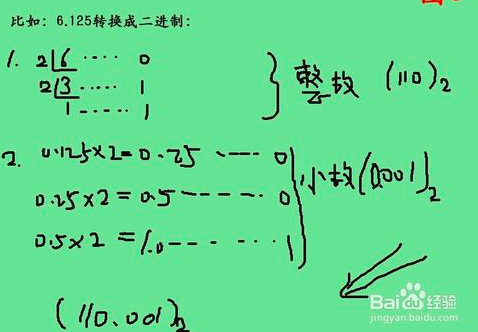 比如: 6.125转换成二进制:
1. 2 6 ····· 0
2 3 ····· 1
1 ····· 1
整数 (110)₂
2. 0.125×2=0.25 ····· 0
0.25×2=0.5 ······ 0
0.5×2=1.0 ······ 1
小数 (0.001)₂
(110.001)₂
Baidu经验
jingyan.baidu.com